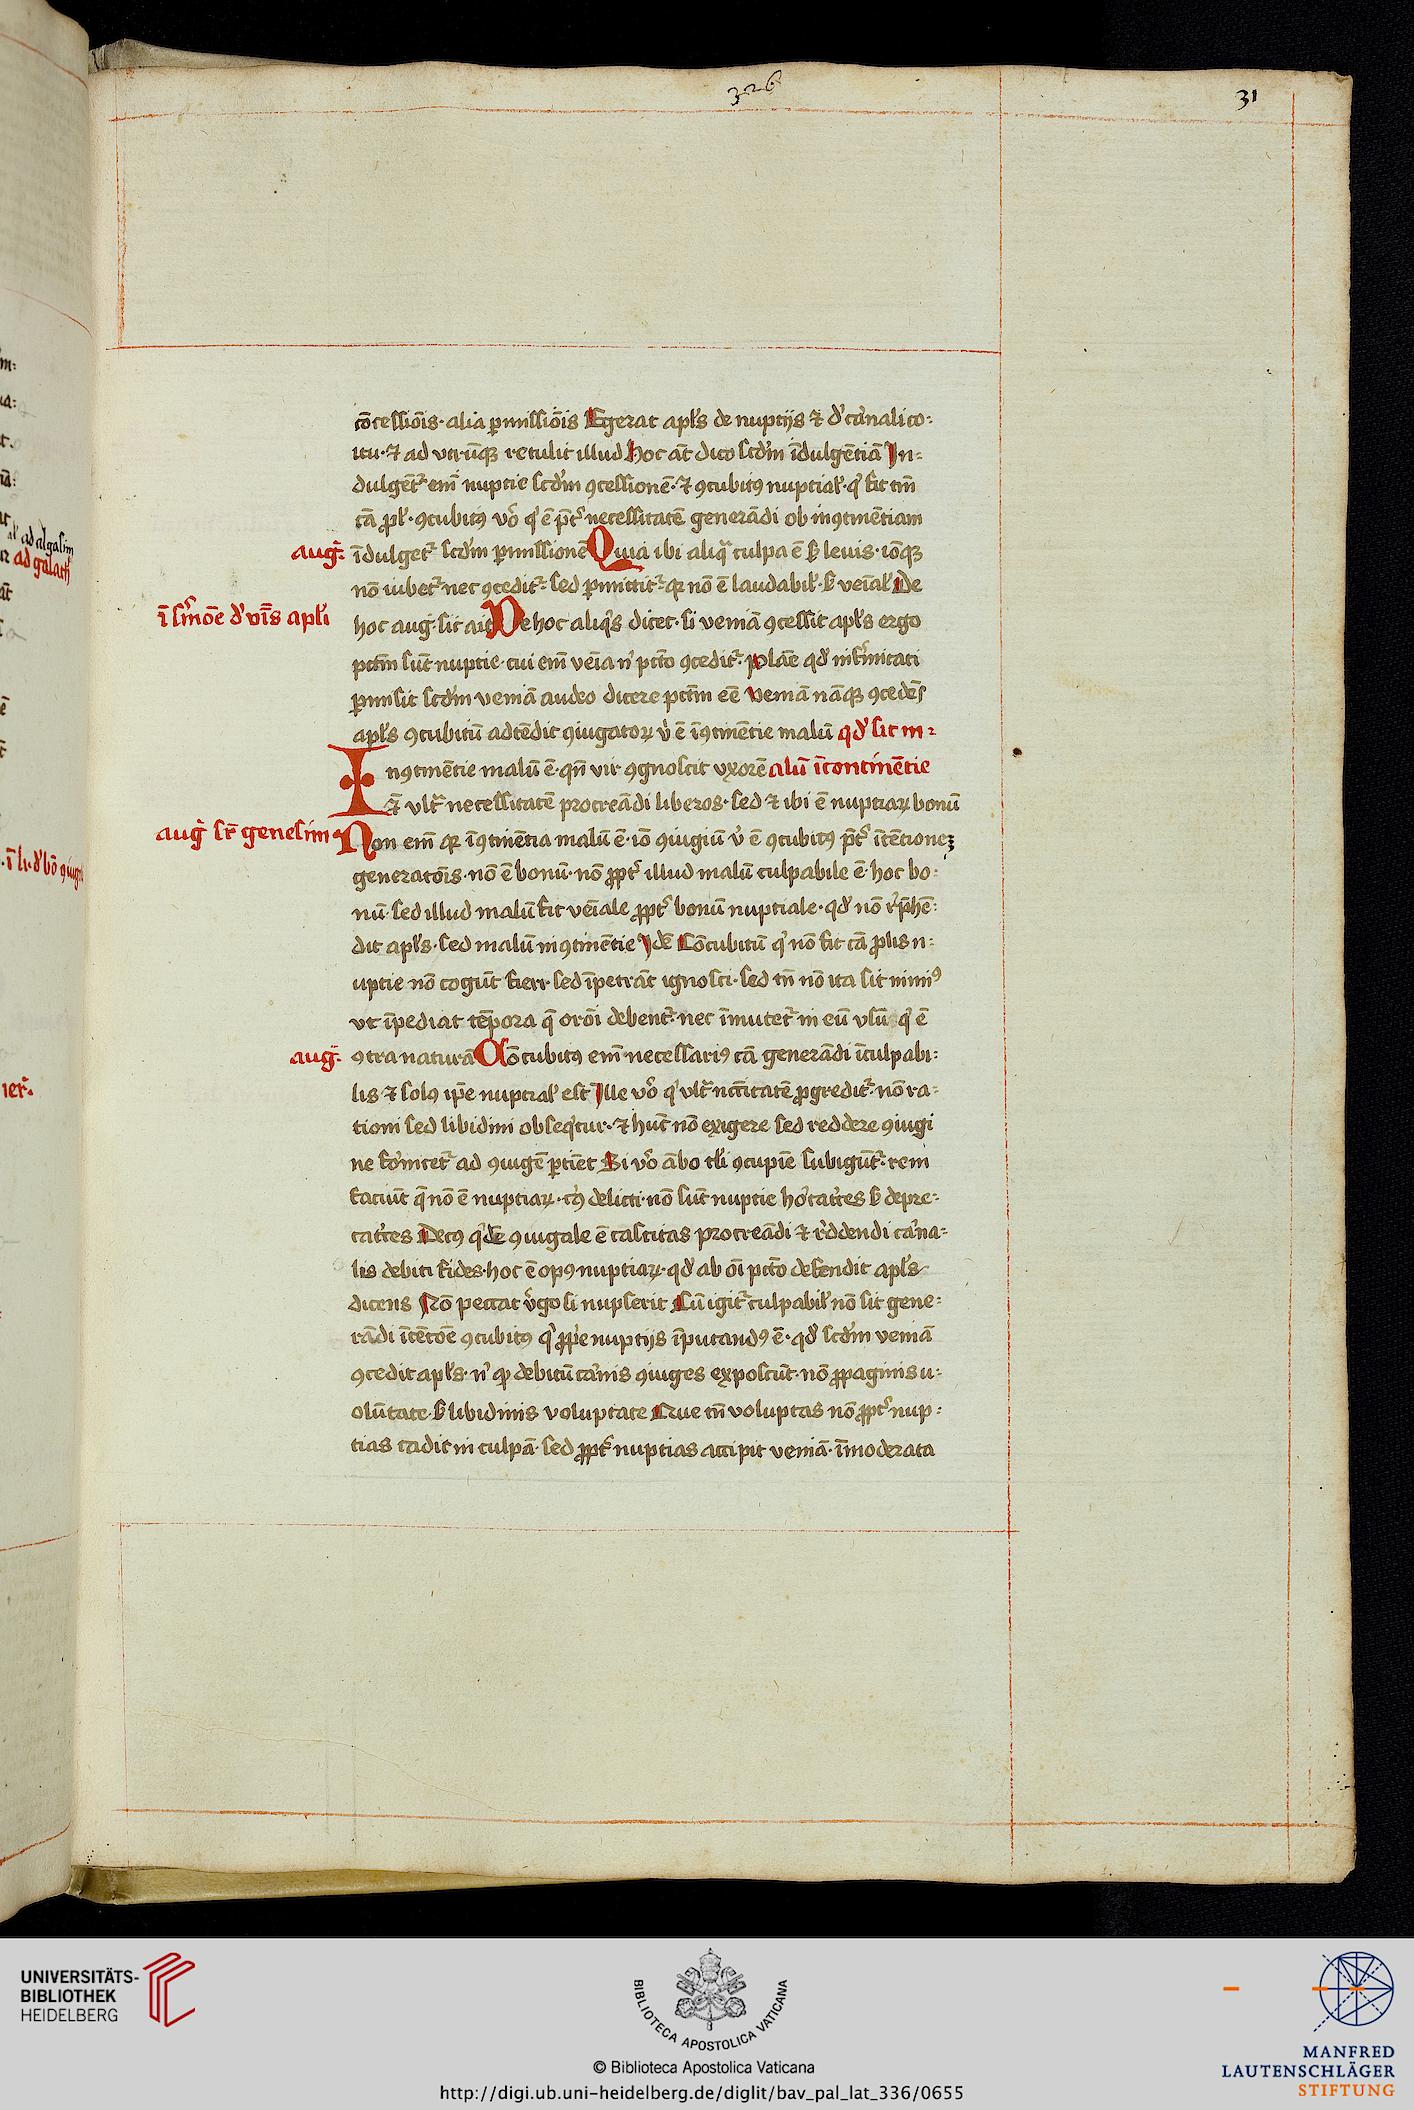 326
31
cōcessiōis · alia ꝑmissiōis Egerat apl's de nuptijs ⁊ d' carnali co:
itu · ⁊ ad vtrūqꝫ retulit illud hoc āt dico scd'm īdulgētiā In:
dulgēt' em̄ nuptie scd'm ꝯcessionē · ⁊ ꝯcubitꝰ nuptial' · q' fit tm̄
cā ꝓl' · ꝯcubitꝰ vō q' ē p̄t' necessitatē generādi ob inꝯtinētiam
auḡ:
īdulget' scd'm ꝑmissionē Quia ibi aliq̄ culpa ē ẜ leuis · iōqꝫ
nō iubet' nec ꝯcedit' · sed ꝑmittit' · qꝛ nō ē laudabil' · ẜ veīal' De
ī s'mōe d' v̄bīs apl'i
hoc auḡ · sic ait De hoc aliq's dicet · si veniā ꝯcessit apl's ergo
pctm̄ sūt nuptie · cui em̄ veīa n' pctō ꝯcedit' · plāe qd' infirmitati
ꝑmisit scd'm veniā audeo dicere pctm̄ eē veniā nāqꝫ ꝯcedēs
apl's ꝯcubitū adtēdit ꝯiugatoꝝ v' ē īꝯtinētie malū qd' sit m:
Inꝯtinētie malū ē · qn̄ vir ꝯgnoscit vxorē alū īcontinētie
ēt vlt' necessitatē procreādi liberos · sed ⁊ ibi ē nuptiaꝝ bonū
auḡ sr̄ genesim
Non em̄ qꝛ īꝯtinētia malū ē · iō ꝯiugiū v' ē ꝯcubitꝰ p̄t' ītētioneꝫ
generatōis · nō ē bonū · nō ꝓpt' illud malū culpabile ē · hoc bo:
nū · sed illud malū fit veīale ꝓpt' bonū nuptiale · qd' nō r'p̄hē:
dit apl's · sed malū inꝯtinētie Idē Cōcubitū q' nō fit cā ꝓlis n:
uptie nō cogūt fieri · sed īpetrāt ignosci · sed tn̄ nō ita sit nimiꝰ
vt īpediat tēpora q̄ orōi debent' · nec īmutet' in eū vsū q' ē
auḡ:
ꝯtra naturā Cōcubitꝰ em̄ necessariꝰ cā generādi īculpabi:
lis ⁊ solꝰ ip̄e nuptial' est Ille vō q' vlt' nccitatē ꝓgredit' · nō ra:
tioni sed libidini obseq'tur · ⁊ hūc nō exigere sed reddere ꝯiugi
ne fornicet' ad ꝯiugē ꝑtinet Si vō ābo tl'i ꝯcupīe subigūt' · rem
faciūt q̄ nō ē nuptiaꝝ · cꝰ delicti · nō sūt nuptie hortatr'es ẜ depre:
catr'es Decꝰ q'dē ꝯiugale ē castitas procreādi ⁊ r'ddendi carna:
lis debiti fides · hoc ē opꝰ nuptiaꝝ · qd' ab oī pctō defendit apl's
dicens Nō peccat v'go si nupserit Cū igit' culpabil' nō sit gene:
rādi ītētōe ꝯcubitꝰ q' ꝓp'e nuptijs īputandꝰ ē · qd' scd'm veniā
ꝯcedit apl's · n' qꝫ debitū carnis ꝯiuges exposcūt · nō ꝓpaginis u:
olūtate · ẜ libidinis voluptate Que tn̄ voluptas nō ꝓpt' nup:
tias cadit in culpā · sed ꝓpt' nuptias accipit veniā · īmoderata
UNIVERSITÄTS-
BIBLIOTHEK
HEIDELBERG
BIBLIOTECA APOSTOLICA VATICANA
© Biblioteca Apostolica Vaticana
http://digi.ub.uni-heidelberg.de/diglit/bav_pal_lat_336/0655
MANFRED
LAUTENSCHLÄGER
STIFTUNG